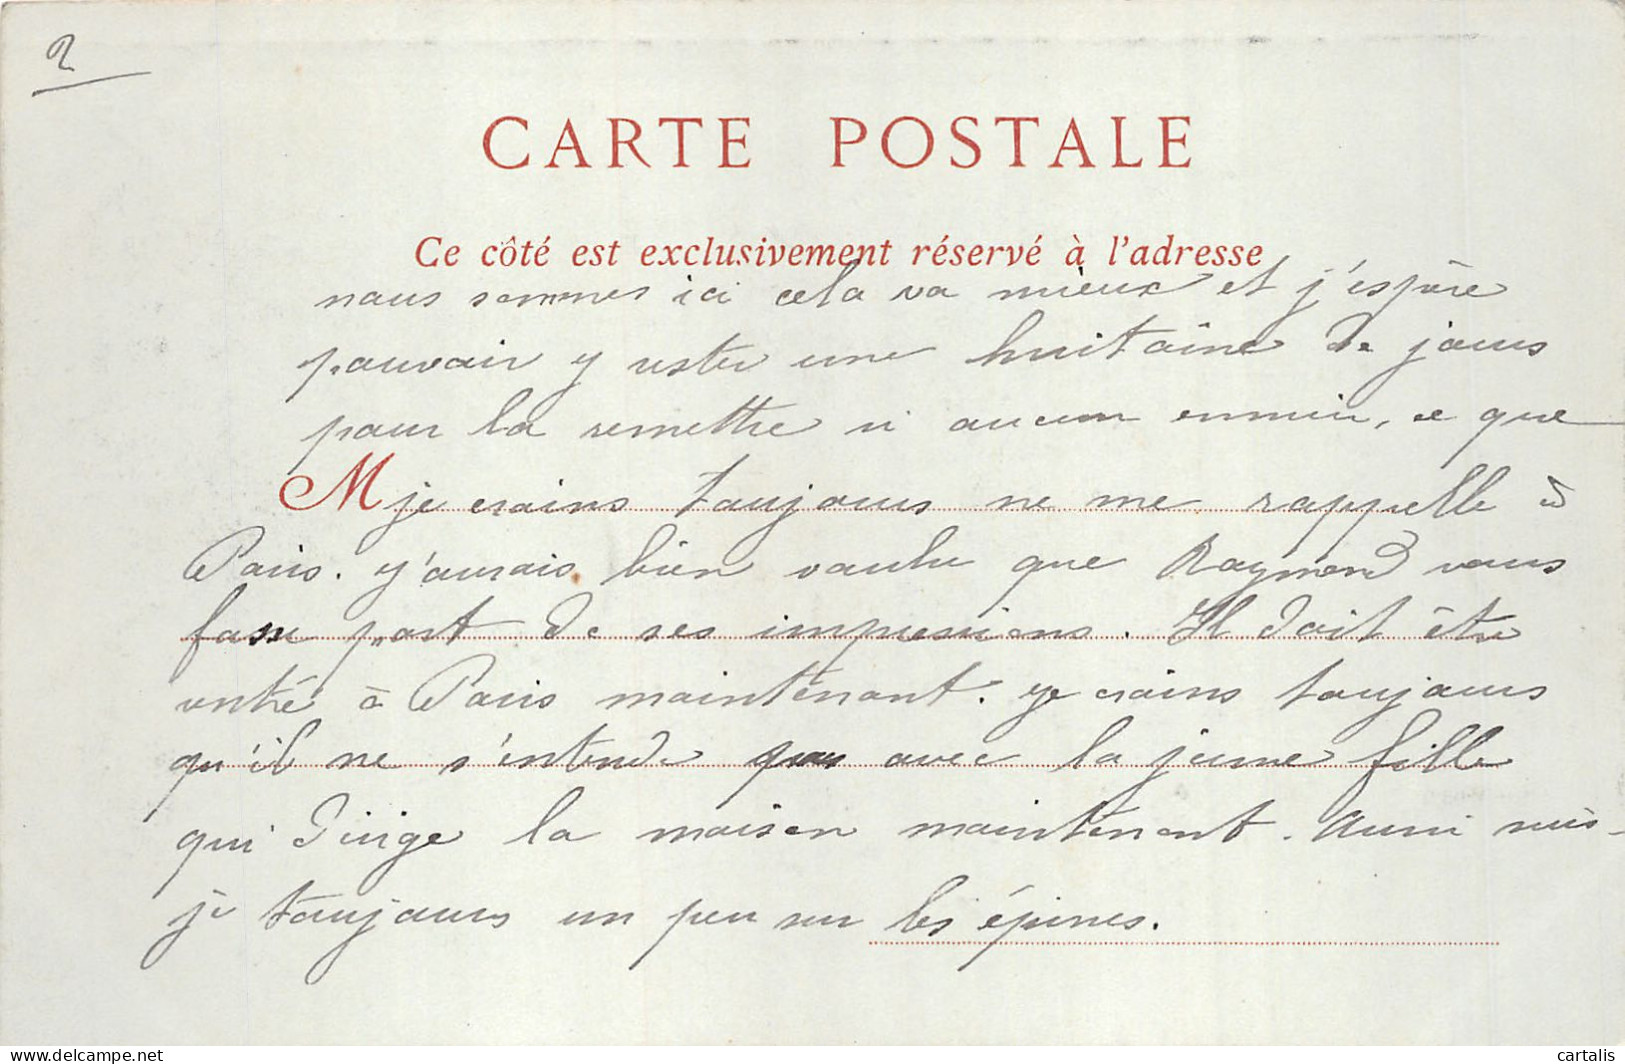 2
CARTE POSTALE
Ce côté est exclusivement réservé à l'adresse
nous sommes ici cela va mieux et j'espère
pouvoir y rester une huitaine de jours
pour la remettre si aucun ennui, ce que
M je crains toujours ne me rappelle à
Paris. J'aurais bien voulu que Raymond vous
fasse part de ses impressions. Il doit être
rentré à Paris maintenant. Je crains toujours
qu'il ne s'entende pas avec la jeune fille
qui dirige la maison maintenant. Aussi suis-
je toujours un peu sur les épines.
Delcampe.net
cartalis